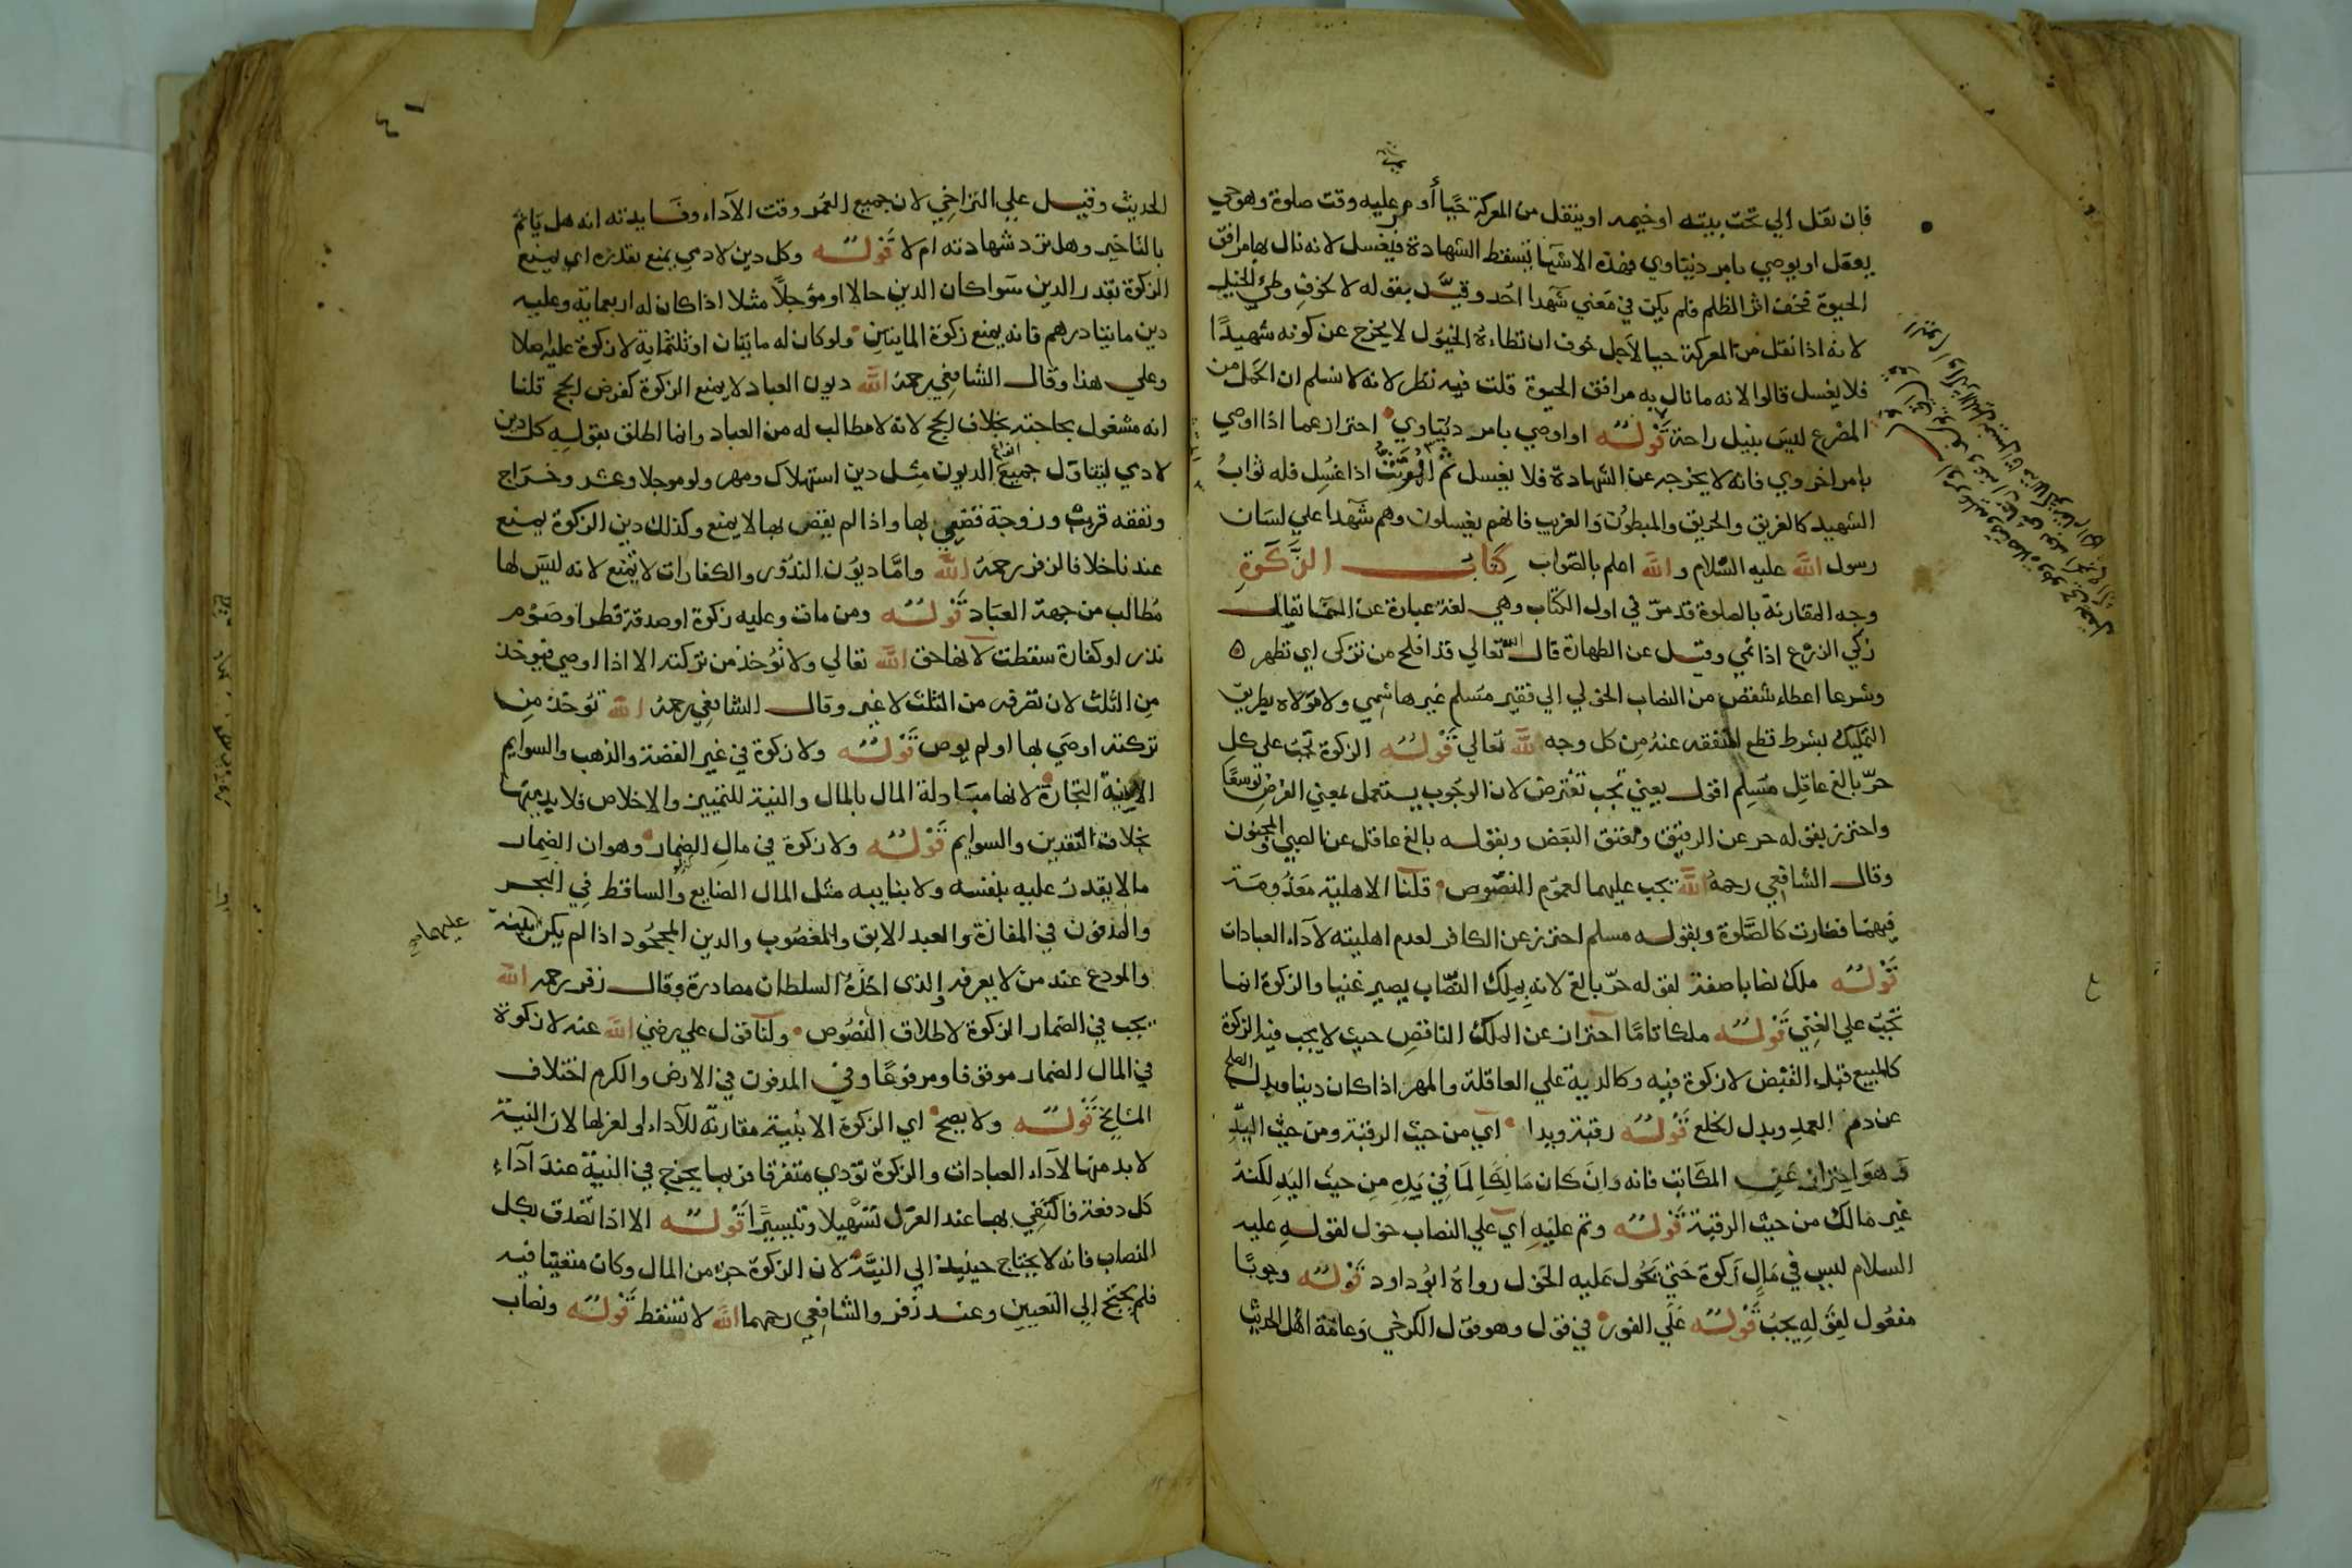 فان نقل الي تحت بيته او خيمه او ينقل من المعركة حيا أو مر عليه وقت صلوة وهو حي
يعقل او يوصي بامر دنياوي فهذه الاشيا تسقط الشهادة فيغسل لانه نال بها مرافق
الحيوة فخف اثر الظلم فلم يكن في معني شهدا احد وقيد بقوله لا لخوف وطئ الخيل
لانه اذا نقل من المعركة حيا لاجل خوف ان تطاءه الخيول لا يخرج عن كونه شهيدا
فلا يغسل قالوا لانه ما نال به مرافق الحيوة قلت فيه نظر لانه لا نسلم ان الحمل من
المصرع ليس بنيل راحة قوله او اوصي بامر دنياوي احتراز عما اذا اوصي
بامر اخروي فانه لا يخرجه عن الشهادة فلا يغسل ثم المرتث اذا غسل فله ثواب
الشهيد كالغريق والحريق والمبطون والغريب فانهم يغسلون وهم شهدا علي لسان
رسول الله عليه السلام والله اعلم بالصواب كتاب الزكوة
وجه المقارنة بالصلوة قد مر في اول الكتاب وهي لغة عبارة عن النما يقال
زكي الزرع اذا نمي وقيل عن الطهارة قال الله تعالي قد افلح من تزكى اي تطهر ه
وشرعا اعطاء شقص من النصاب الحولي الي فقير مسلم غير هاشمي ولا مولاه بطريق
التمليك بشرط قطع المنفعه عنه من كل وجه لله تعالي قوله الزكوة تجب على كل
حر بالغ عاقل مسلم اقول يعني تجب تفترض لان الوجوب يستعمل بمعني الفرض توسعا
واحترز بقوله حر عن الرقيق ومعتق البعض وبقوله بالغ عاقل عن الصبي والمجنون
وقال الشافعي رحمه الله يجب عليهما لعموم النصوص قلنا الاهلية معدومة
فيهما فصارت كالصلوة وبقوله مسلم احترز عن الكافر لعدم اهليته لآداء العبادات
قوله ملك نصابا صفة لقوله حر بالغ لانه بملك النصاب يصير غنيا والزكوة انما
تجب علي الغني قوله ملكا تاما احتراز عن الملك الناقص حيث لا يجب فيه الزكوة
كالمبيع قبل القبض لا زكوة فيه وكالدية علي العاقلة والمهر اذا كان دينا وبدل الصلح
عن دم العمد وبدل الخلع قوله رقبة ويدا اي من حيث الرقبة ومن حيث اليد
وهو احتراز عن المكاتب فانه وان كان مالكا لما في يده من حيث اليد لكنه
غير مالك من حيث الرقبة قوله وتم عليه اي علي النصاب حول لقوله عليه
السلام ليس في مال زكوة حتي يحول عليه الحول رواه ابو داود قوله وجوبا
مفعول لقوله يجب قوله على الفور في قول وهو قول الكرخي وعامة اهل الحديث
ع
٤١
الحديث وقيل علي التراخي لان جميع العمر وقت الآداء وفايدته انه هل ياثم
بالتاخير وهل ترد شهادته ام لا قوله وكل دين لادمي يمنع بقدره اي يمنع
الزكوة بقدر الدين سوا كان الدين حالا او مؤجلا مثلا اذا كان له اربعماية وعليه
دين مايتا درهم فانه يمنع زكوة المايتين ولو كان له مايتان او ثلثماية لا زكوة عليه اصلا
وعلي هذا وقال الشافعي رحمه الله ديون العباد لا يمنع الزكوة كفرض الحج قلنا
انه مشغول بحاجته بخلاف الحج لانه لا مطالب له من العباد وانما اطلق بقوله كل دين
لادمي ليتناول جميع انواع الديون مثل دين استهلاك ومهر ولو موجلا وعشر وخراج
ونفقه قريب وزوجة قضي بها واذا لم يقض بها لا يمنع وكذلك دين الزكوة يمنع
عندنا خلافا لزفر رحمه الله واما ديون النذور والكفارات لا تمنع لانه ليس لها
مطالب من جهة العباد قوله ومن مات وعليه زكوة او صدقة فطر او صوم
نذر او كفارة سقطت لانها حق الله تعالي ولا تؤخذ من تركته الا اذا اوصي فيوخذ
من الثلث لان تصرفه من الثلث لا غير وقال الشافعي رحمه الله توخذ من
تركته اوصي بها او لم يوص قوله ولا زكوة في غير الفضة والذهب والسوايم
الا بنية التجارة لانها مبادلة المال بالمال والنية للتمييز والاخلاص فلا بد منها
بخلاف النقدين والسوايم قوله ولا زكوة في مال الضمار وهو ان الضمار
ما لا يقدر عليه بنفسه ولا بنايبه مثل المال الضايع والساقط في البحر
والمدفون في المفازة والعبد الابق والمغصوب والدين المجحود اذا لم يكن بينة
عليها
والمودع عند من لا يعرفه والذي اخذه السلطان مصادرة وقال زفر رحمه الله
يجب في الضمار الزكوة لاطلاق النصوص ولنا قول علي رضي الله عنه لا زكوة
في المال الضمار موقوفا ومرفوعا وفي المدفون في الارض والكرم اختلاف
المشايخ قوله ولا يصح اي الزكوة الا بنية مقارنة للآداء او لعزلها لان النية
لا بد منها لآداء العبادات والزكوة تؤدي متفرقا فربما يحرج في النية عند آداء
كل دفعة فاكتفي بها عند العزل تسهيلا وتيسيرا قوله الا اذا تصدق بكل
النصاب فانه لا يحتاج حينيذ الي النية لان الزكوة جزء من المال وكان متعينا فيه
فلم يحتج الي التعيين وعند زفر والشافعي رحمهما الله لا تسقط قوله ونصاب